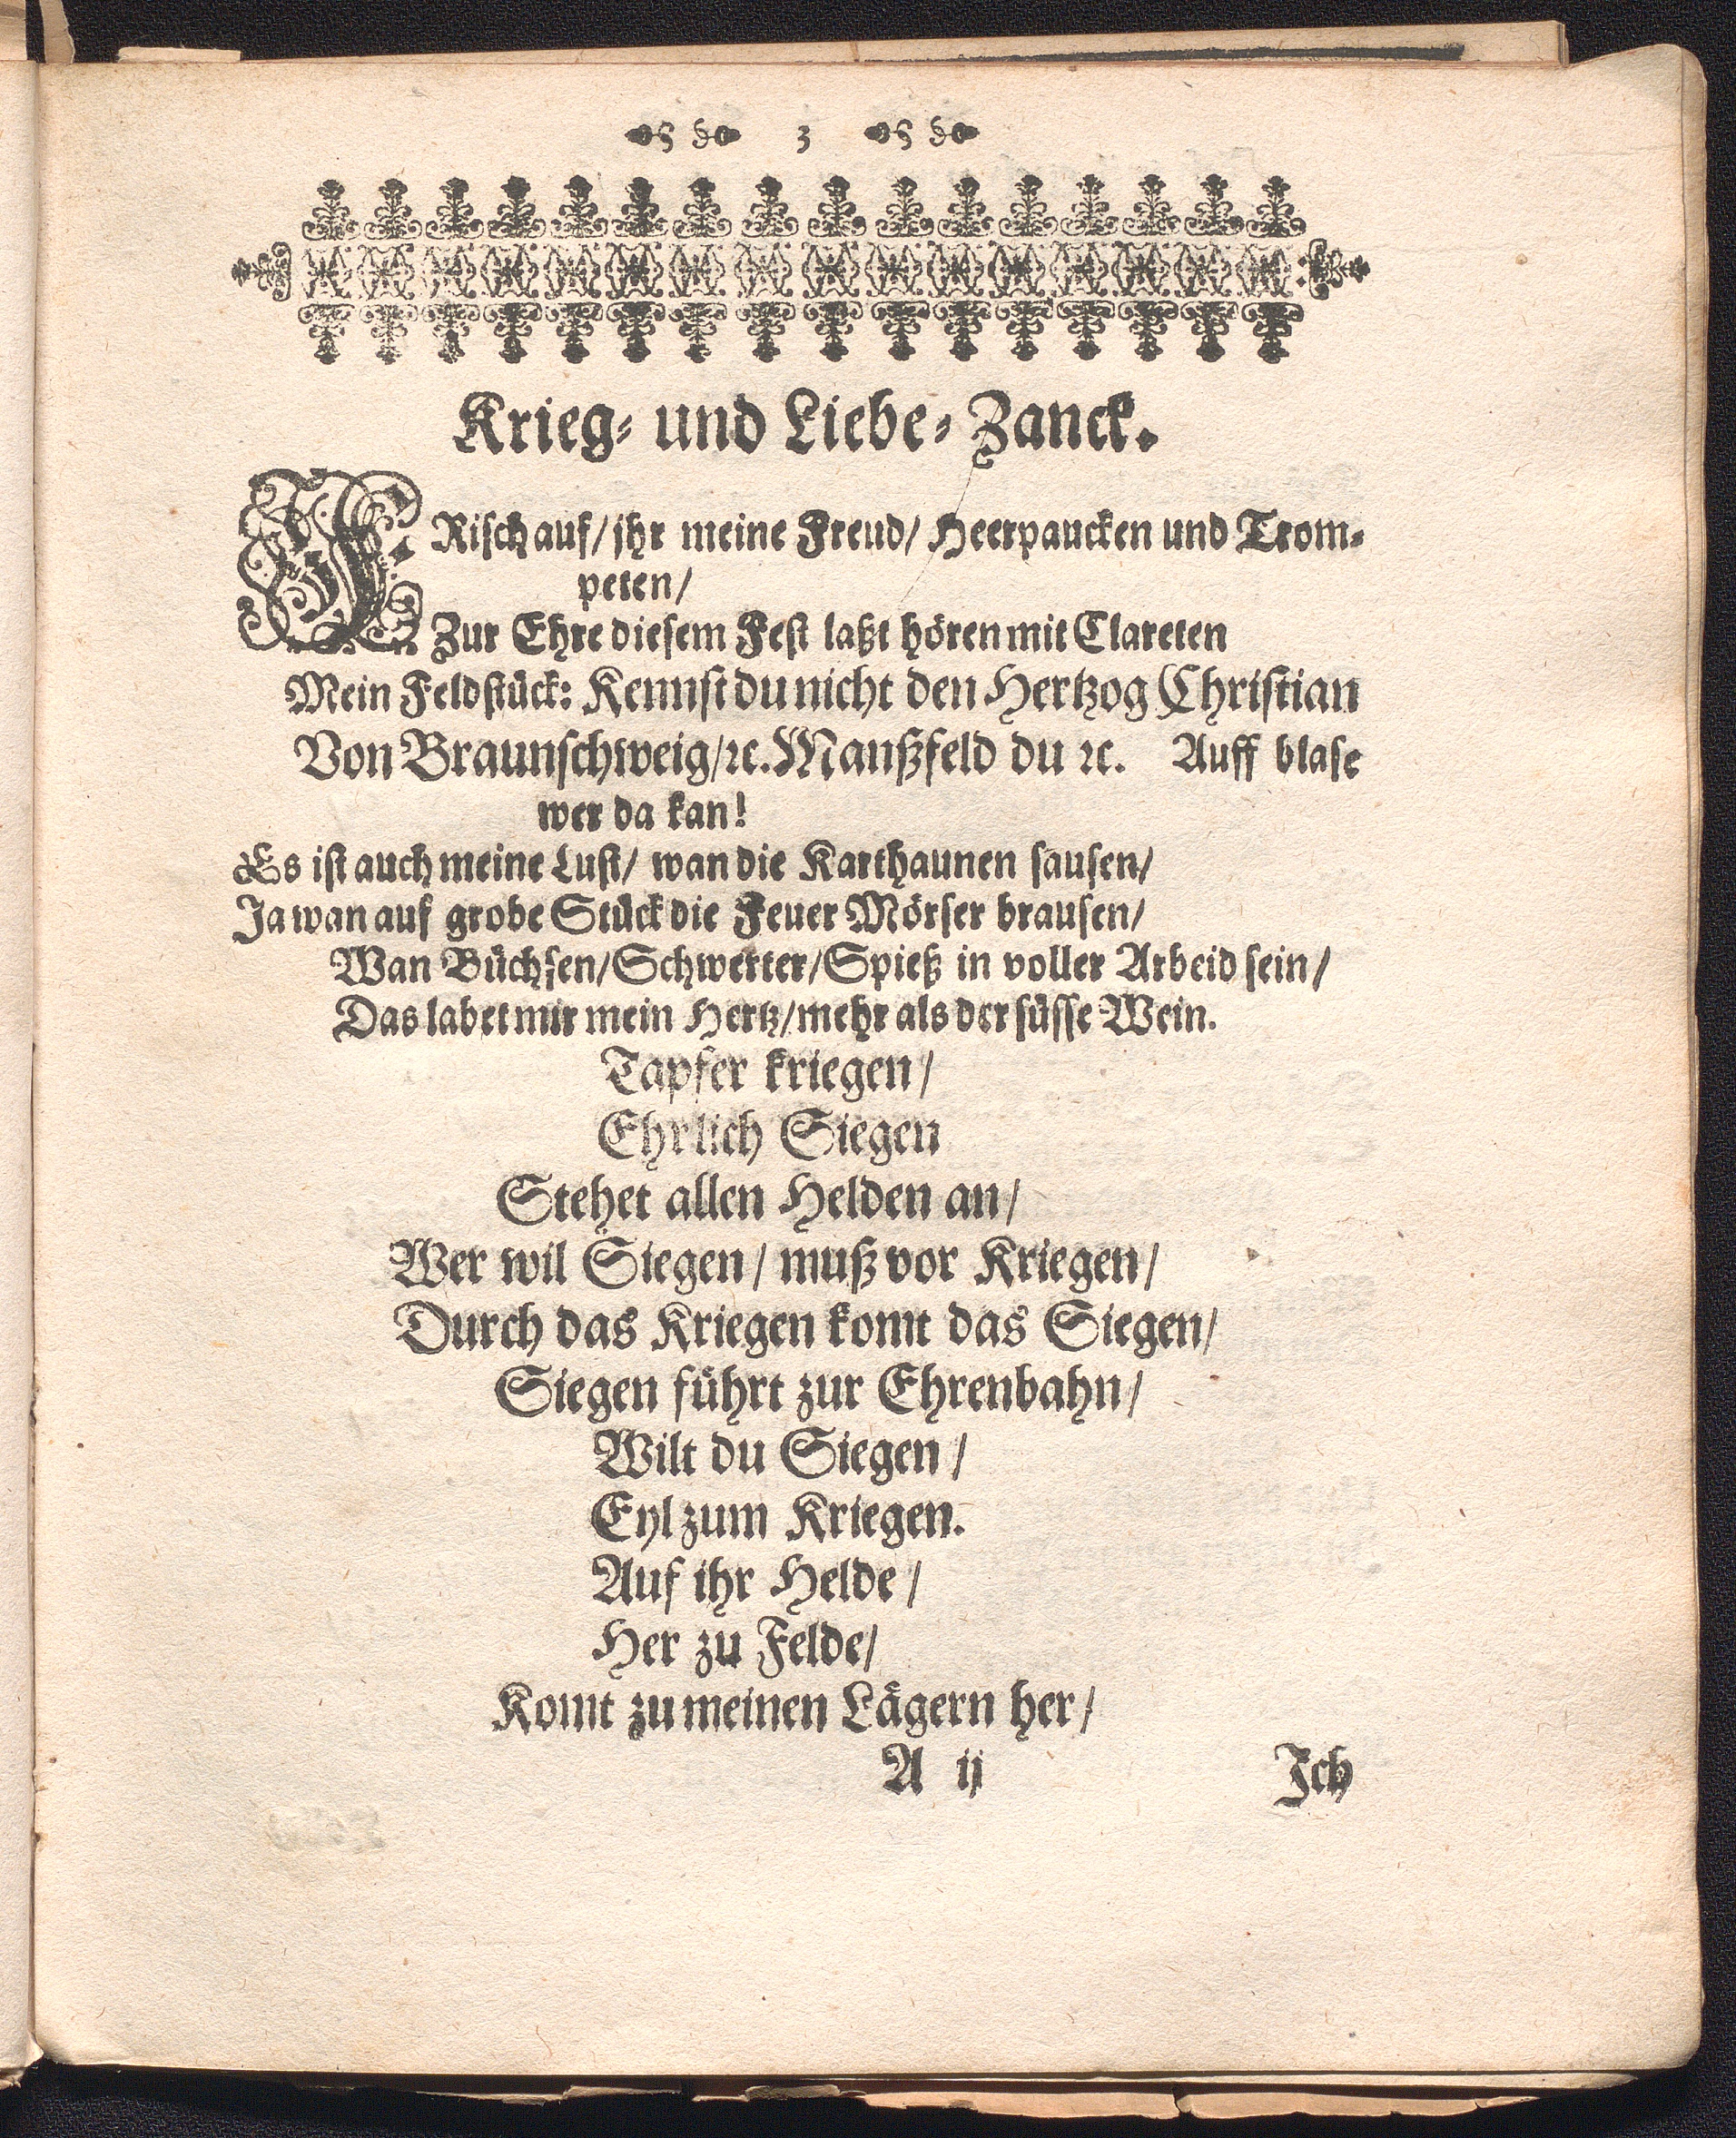 3
Krieg- und Liebe-Zanck.
FRisch auf/ ihr meine Freud/ Heerpaucken und Trom-
peten/
Zur Ehre diesem Fest laßt hören mit Clareten
Mein Feldstück: Kennst du nicht den Hertzog Christian
Von Braunschweig/ ꝛc. Manßfeld du ꝛc. Auff blase
wer da kan!
Es ist auch meine Lust/ wan die Karthaunen sausen/
Ja wan auf grobe Stück die Feuer Mörser brausen/
Wan Büchsen/ Schwerter/ Spieß in voller Arbeid sein/
Das labet mir mein Hertz/ mehr als der süsse Wein.
Tapfer kriegen/
Ehrlich Siegen
Stehet allen Helden an/
Wer wil Siegen/ muß vor Kriegen/
Durch das Kriegen komt das Siegen/
Siegen führt zur Ehrenbahn/
Wilt du Siegen/
Eyl zum Kriegen.
Auf ihr Helde/
Her zu Felde/
Komt zu meinen Lägern her/
A ij Ich